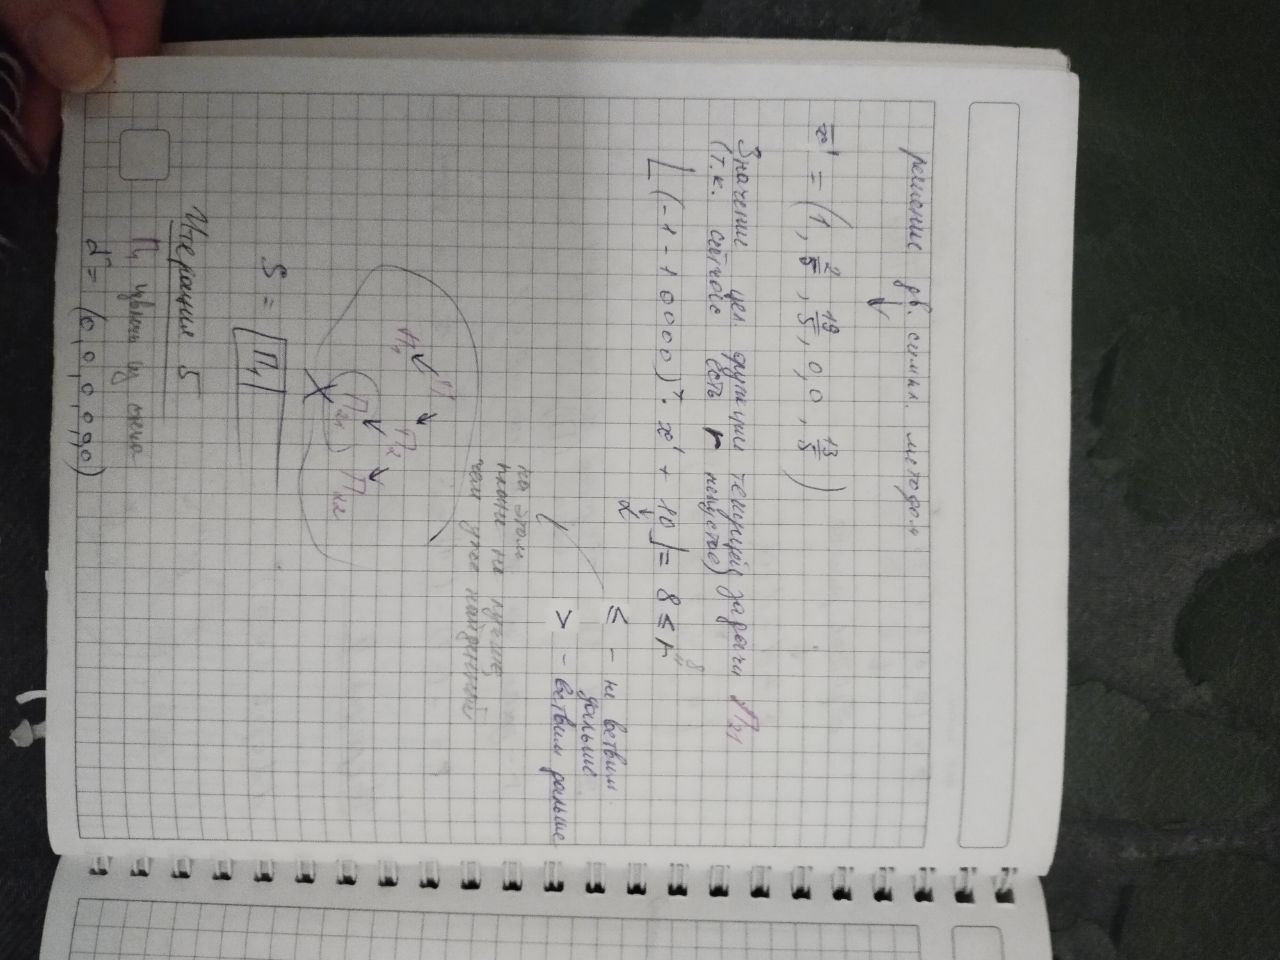 решение дв. симпл. методом
x̄' = (1, 2/5, 19/5, 0, 0, 13/5)
Значение цел. функции текущей задачи П21
(т.к. сейчас есть r непустое)
⌊(-1 -1 0 0 0 0)ᵀ · x' + 10⌋ = 8 ≤ r
" 8
α
≤ - не ветвим
дальше
> - ветвим дальше
на этом
плане не лучше,
чем уже найденный
П
П1 П2
П21 П22
S = П1
Итерация 5
П1 из стека
d⁻ = (0, 0, 0, 0, 0, 0)